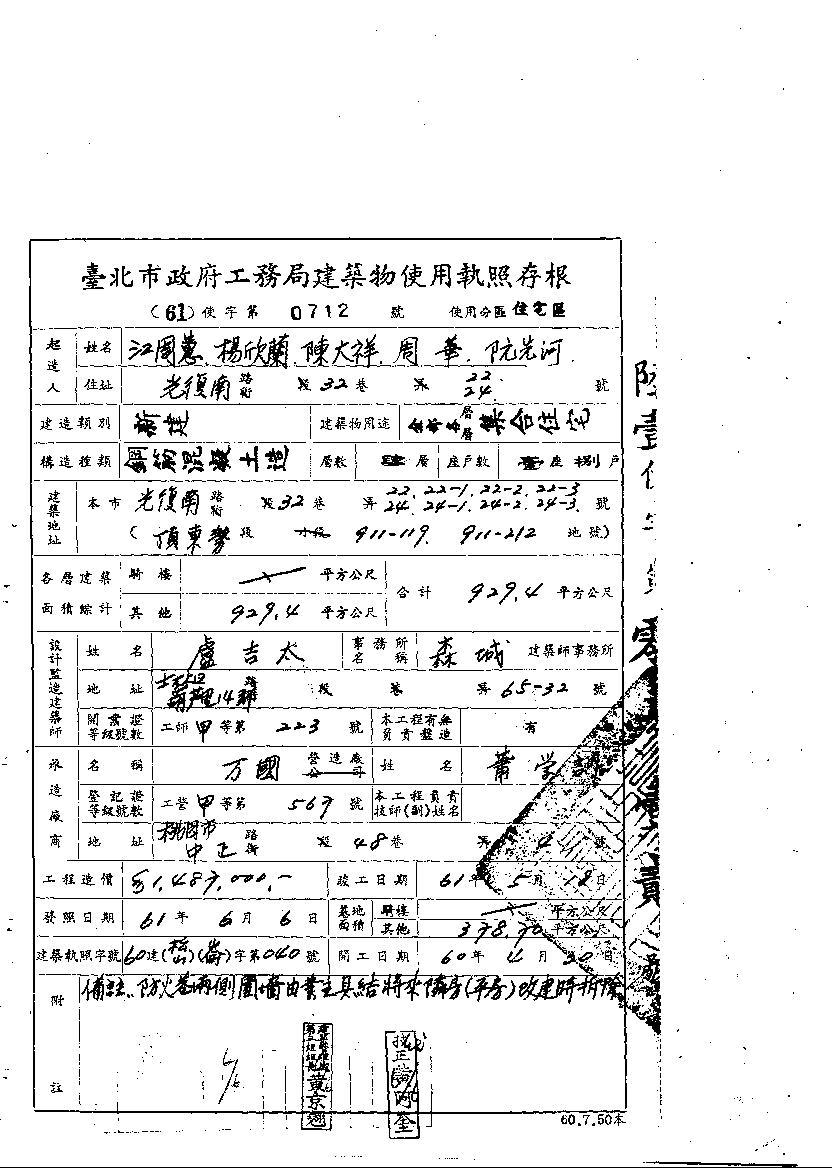 臺北市政府工務局建築物使用執照存根
(61)使字第 0712 號 使用分區 住宅區
起造人 姓名 江周蕙、楊欣蘭、陳大祥、周華、阮光河
住址 光復南路街 段 32 巷 弄 22 24 號
建造類別 新建 建築物用途 集合住宅
構造種類 鋼筋混凝土造 層數 肆層 座戶數 壹座 捌戶
建築地址 本市 光復南路街 段 32 巷 弄 22、22-1、22-2、22-3 24、24-1、24-2、24-3 號
(頂東勢 段 小段 911-119、 911-212 地號)
各層建築面積綜計 騎樓 平方公尺 合計 929.4 平方公尺
其他 929.4 平方公尺
設計監造建築師 姓名 盧吉太 事務所名稱 森城 建築師事務所
地址 士林區葫芦里14鄰 路 段 巷 弄 65-32 號
開業證等級號數 工師甲等第 223 號 本工程有無負責監造 有
承造廠商 名稱 万國 營造廠公司 姓名 蕭学
登記證等級號數 工營甲等第 567 號 本工程負責技師(副)姓名
地址 桃園市中正路街 段 48 巷 弄 4 號
工程造價 1,487,000.- 竣工日期 61年 5月 18日
發照日期 61年 6月 6日 基地面積 騎樓 平方公尺
其他 378.70 平方公尺
建築執照字號 60建(松)(崙)字第040號 開工日期 60年 4月 30日
附註 備註:防火巷兩側圍墻由業主具結將來隣房(平房)改建時拆除
6/6
黃京翹
校正
60.7.50本